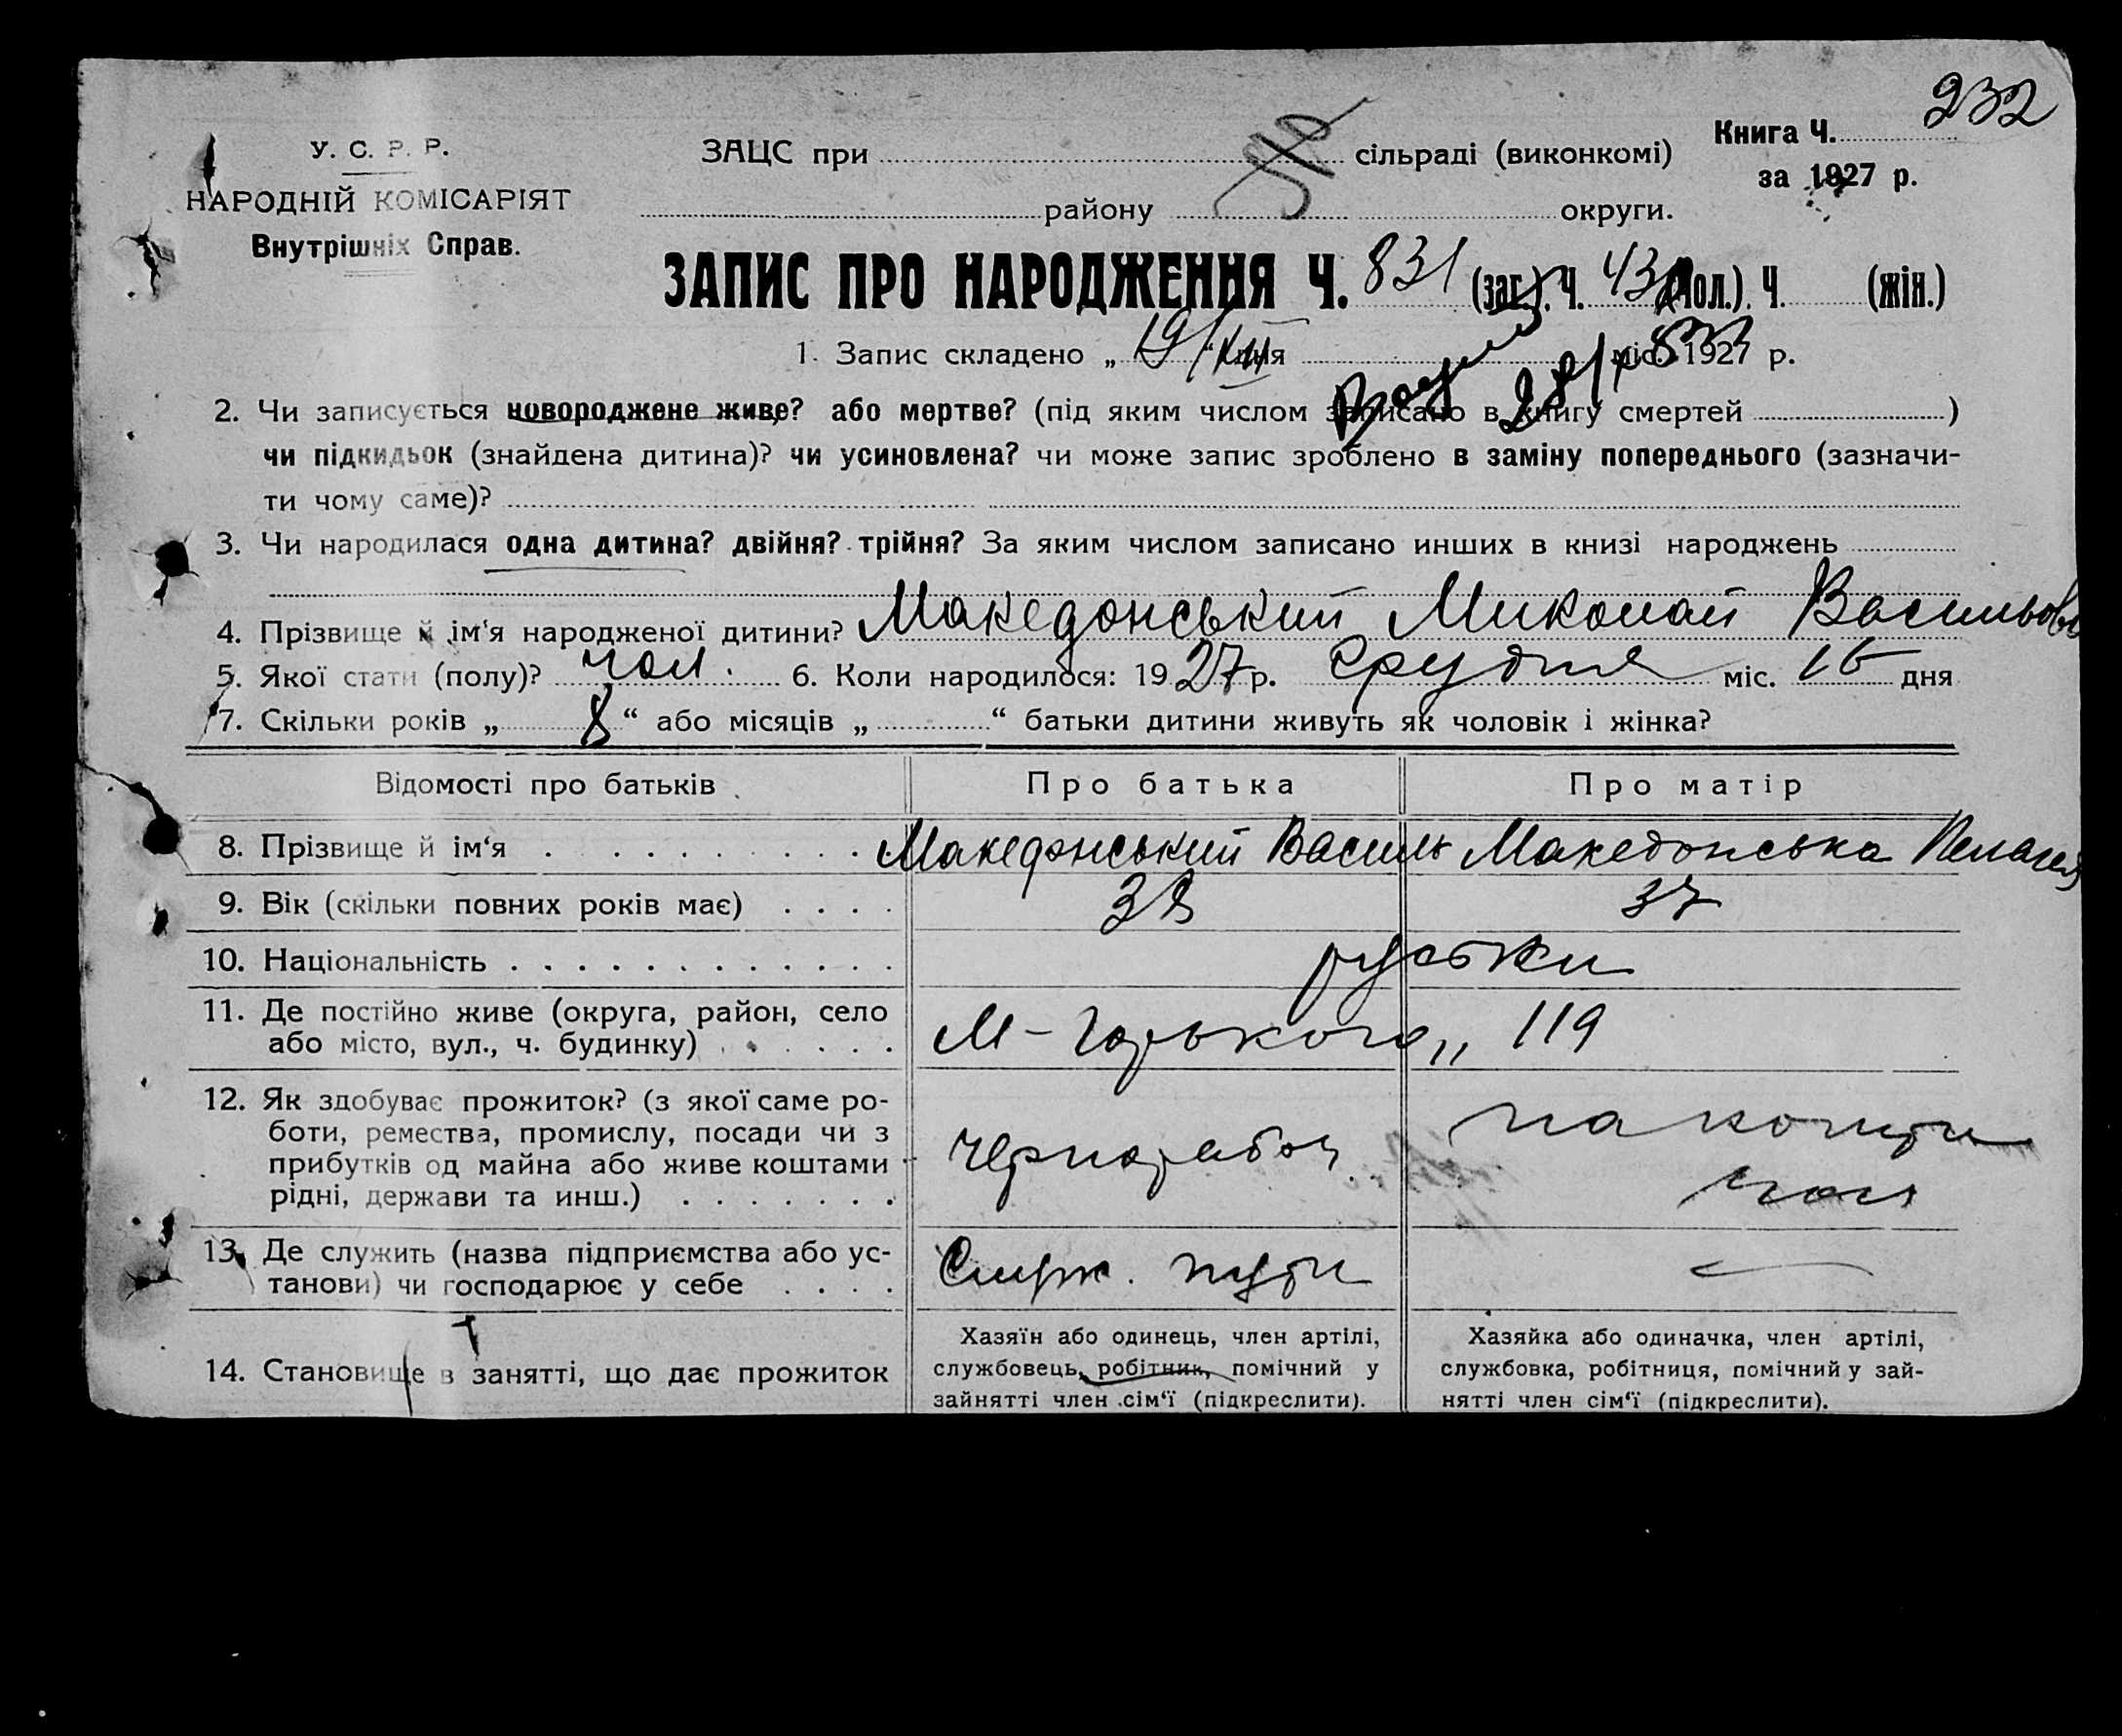 232
У. С. Р. Р.
НАРОДНІЙ КОМІСАРІЯТ
Внутрішніх Справ.
ЗАЦС при сільраді (виконкомі)
району округи.
Книга Ч.
за 1927 р.
ЗАПИС ПРО НАРОДЖЕННЯ Ч. 831 (заг.). Ч. 43 (чол.). Ч. (жін.)
1. Запис складено „ 19/XII “ дня міс. 1927 р.
2. Чи записується новороджене живе? або мертве? (під яким числом записано в книгу смертей )
чи підкидьок (знайдена дитина)? чи усиновлена? чи може запис зроблено в заміну попереднього (зазначи-
ти чому саме)?
3. Чи народилася одна дитина? двійня? трійня? За яким числом записано инших в книзі народжень
4. Прізвище й ім‘я народженої дитини? Македонський Миколай Васильов
5. Якої статі (полу)? чол. 6. Коли народилося: 1927 р. Грудня міс. 16 дня
7. Скільки років „ 8 “ або місяців „ “ батьки дитини живуть як чоловік і жінка?
Відомості про батьків Про батька Про матір
8. Прізвище й ім‘я Македонський Василь Македонська Пелагея
9. Вік (скільки повних років має) 38 37
10. Національність руські
11. Де постійно живе (округа, район, село
або місто, вул., ч. будинку) М-Горького „ 119
12. Як здобуває прожиток? (з якої саме ро-
боти, ремества, промислу, посади чи з
прибутків од майна або живе коштами
рідні, держави та инш.)
чернорабоч на кошти
чол
13. Де служить (назва підприємства або ус-
танови) чи господарює у себе Служ. пути —
14. Становище в занятті, що дає прожиток
Хазяїн або одинець, член артілі,
службовець, робітник, помічний у
зайнятті член сім‘ї (підкреслити).
Хазяйка або одиначка, член артілі,
службовка, робітниця, помічний у зай-
нятті член сім‘ї (підкреслити).